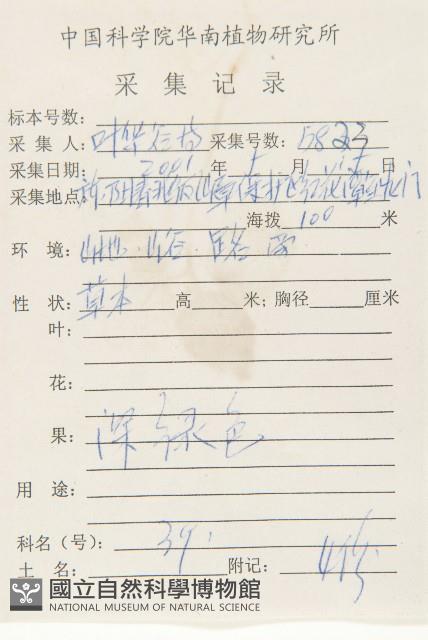 中国科学院华南植物研究所
采 集 记 录
标本号数:
采 集 人: 叶华谷 采集号数: 5823
采集日期: 2001 年 月 日
采集地点:
海拨 100 米
环 境: 山地·山谷·
性 状: 草本 高 米; 胸径 厘米
叶:
花:
果: 深绿色
用 途:
科名(号): 39.
土 名: 附记:
國立自然科學博物館
NATIONAL MUSEUM OF NATURAL SCIENCE